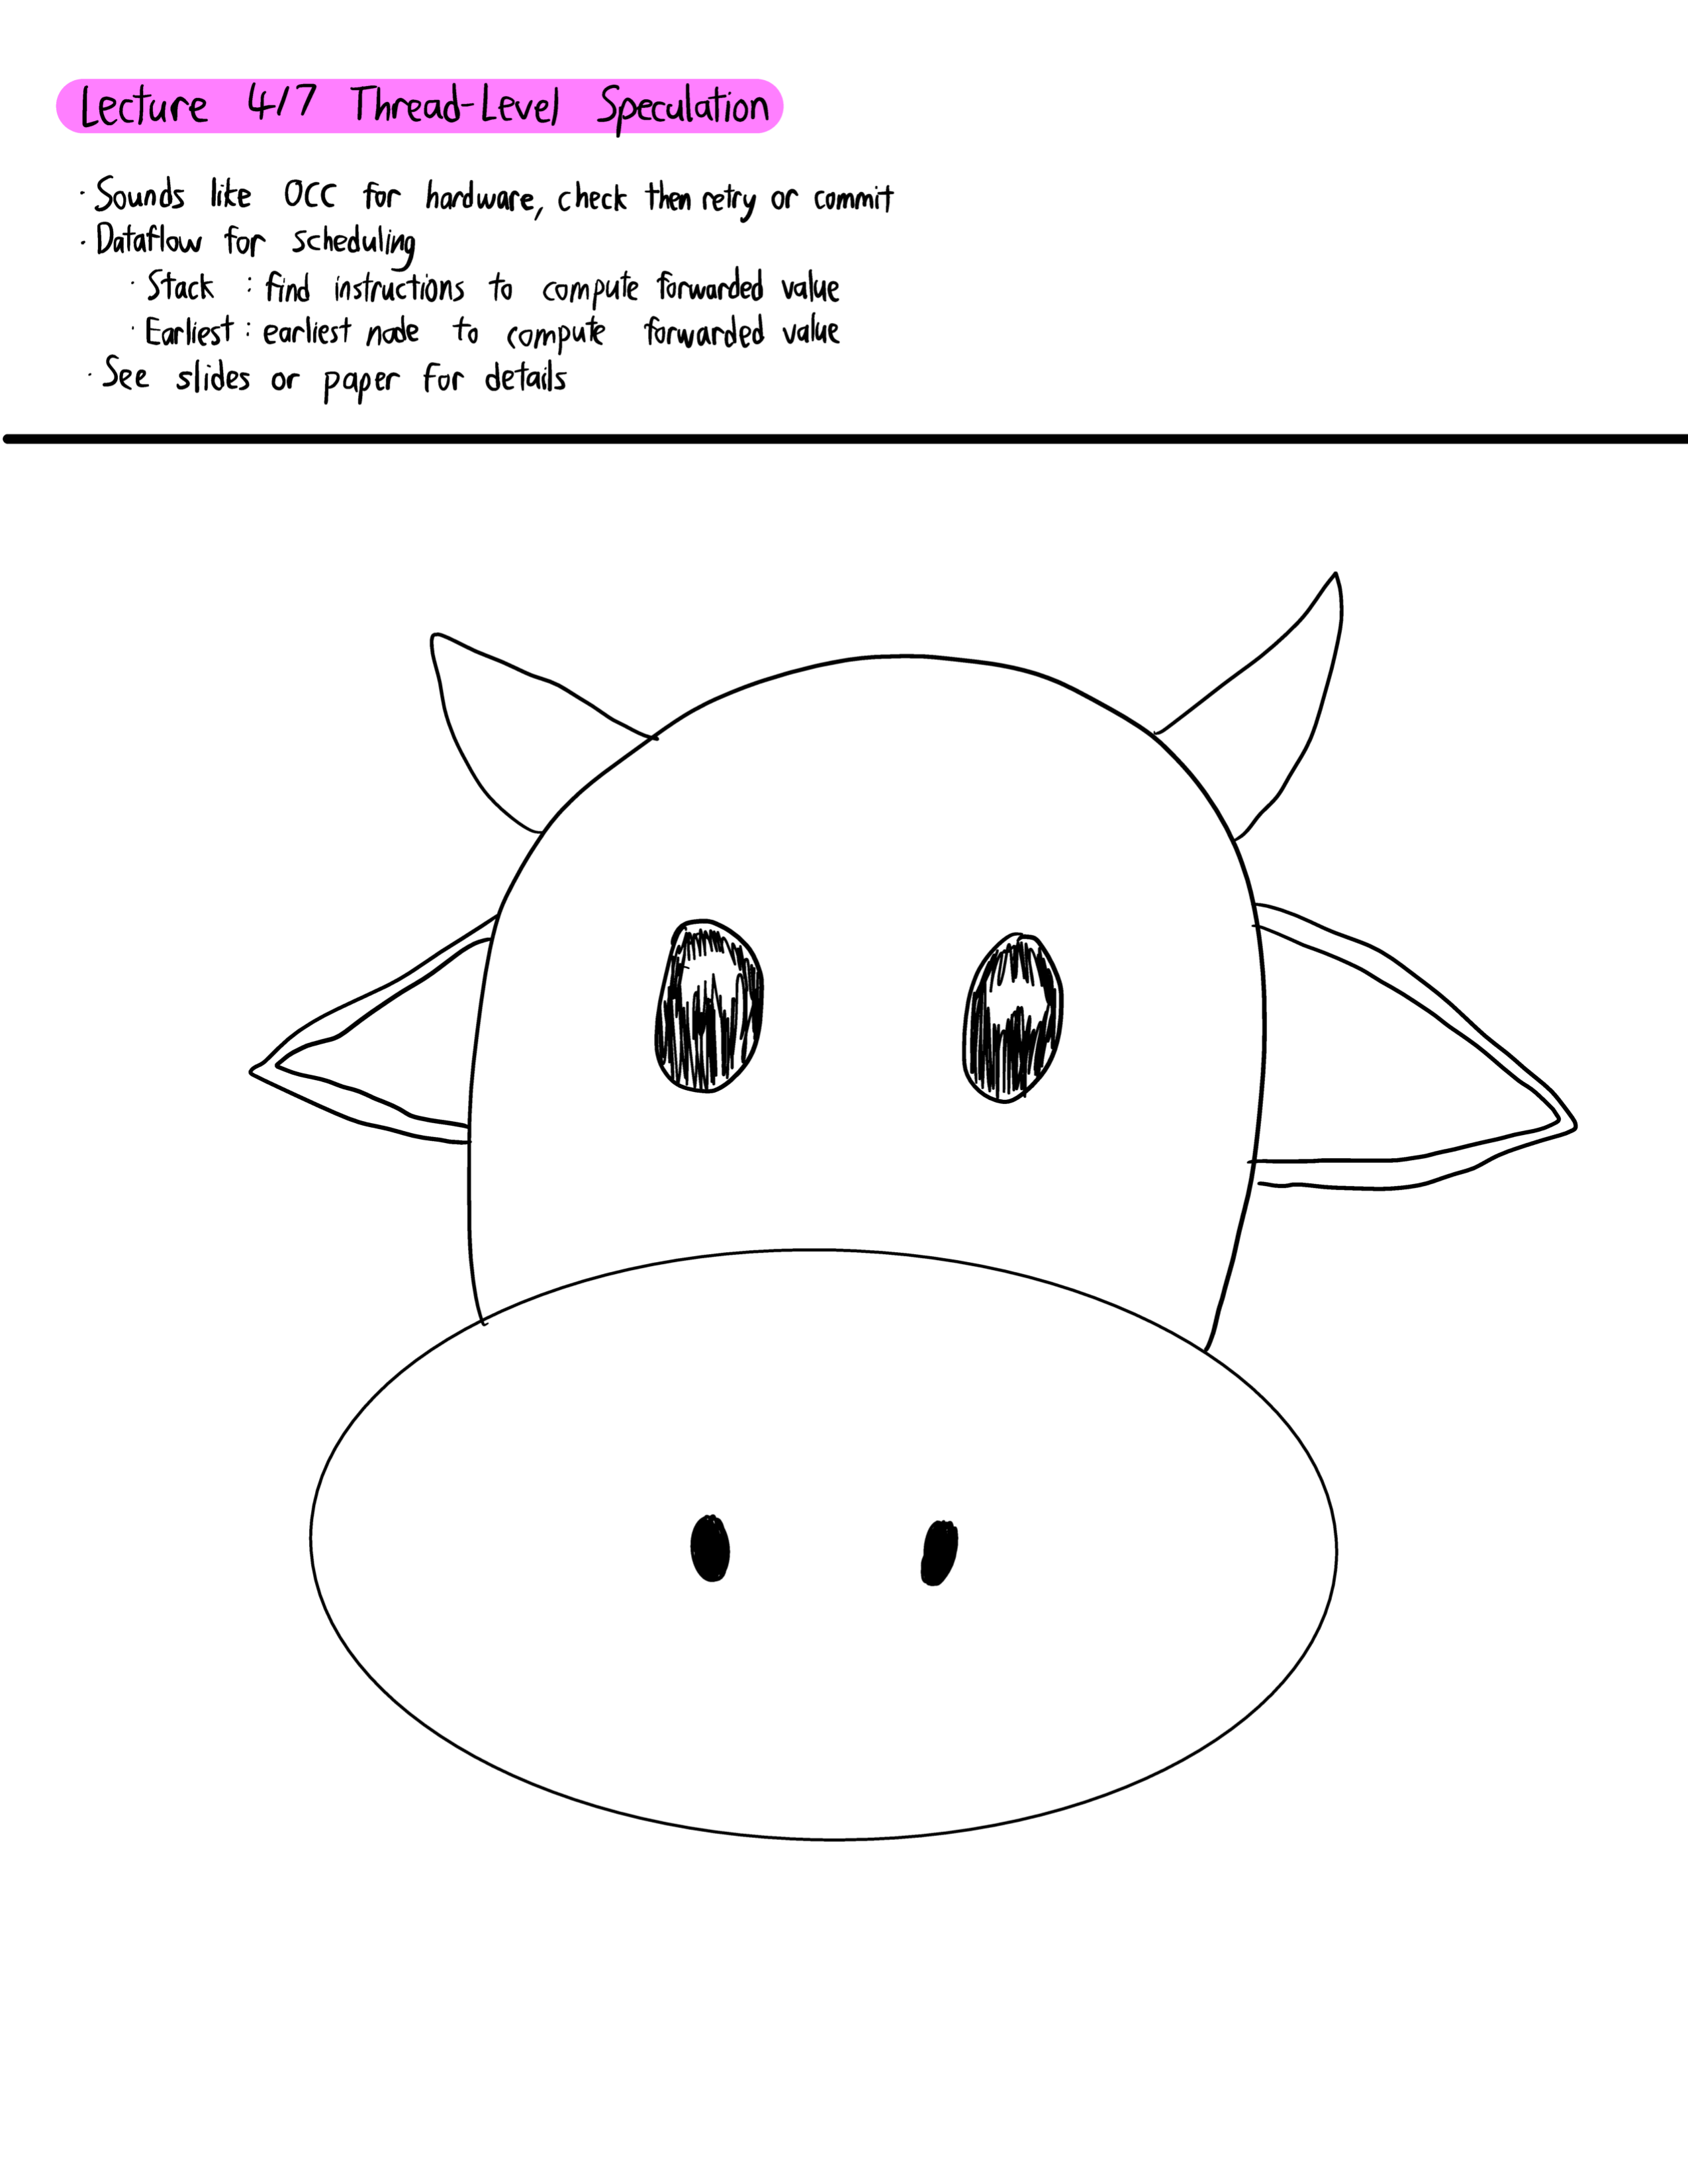 Lecture 4/7 Thread-Level Speculation
· Sounds like OCC for hardware, check then retry or commit
· Dataflow for scheduling
· Stack : find instructions to compute forwarded value
· Earliest : earliest node to compute forwarded value
· See slides or paper for details